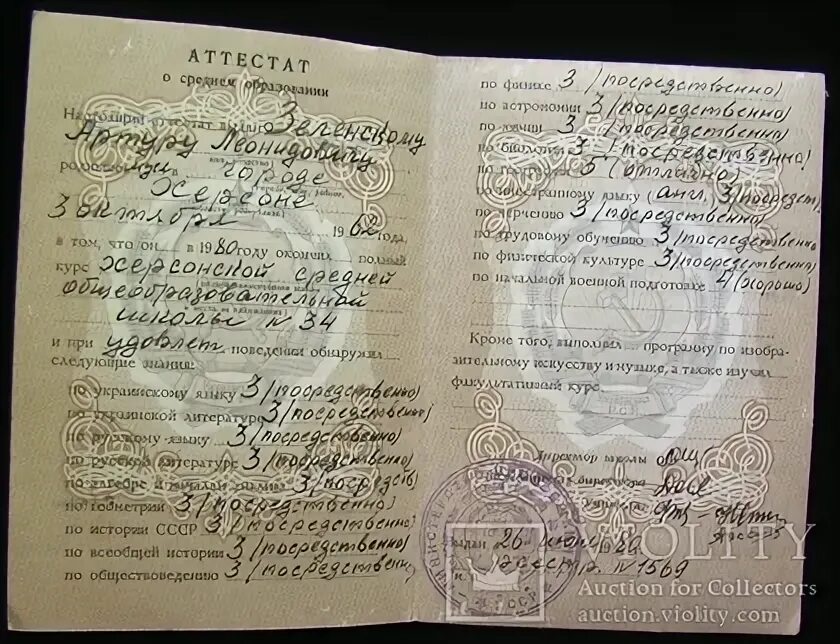 АТТЕСТАТ
о среднем образовании
Настоящий аттестат выдан Зеленскому
Артуру Леонидовичу
городе
Херсоне
3 октября 1962 года,
в том, что он в 1980 году окончил полный
курс Херсонской средней
общеобразовательной
школы №34
и при удовлет поведении обнаружил
следующие знания:
по украинскому языку 3 (посредственно)
по украинской литературе 3 (посредственно)
по русскому языку 3 (посредственно)
по русской литературе 3 (посредственно)
по алгебре и началам анализа 3 (посредств)
по геометрии 3 (посредственно)
по истории СССР 3 (посредственно)
по всеобщей истории 3 (посредственно)
по обществоведению 3 (посредственно)
по физике 3 (посредственно)
по астрономии 3 (посредственно)
по химии 3 (посредственно)
по биологии 3 (посредственно)
по географии 5 (отлично)
по иностранному языку (англ. 3 (посредст)
по черчению 3 (посредственно)
по трудовому обучению 3 (посредственно)
по физической культуре 3 (посредственно)
по начальной военной подготовке 4 (хорошо)
Кроме того, выполнил программу по изобра-
зительному искусству и музыке, а также изучил
факультативный курс
Директор школы
директора
Учителя
Выдан 26 июня 1980
реестр. №1569
VIOLITY
Auction for Collectors
auction.violity.com